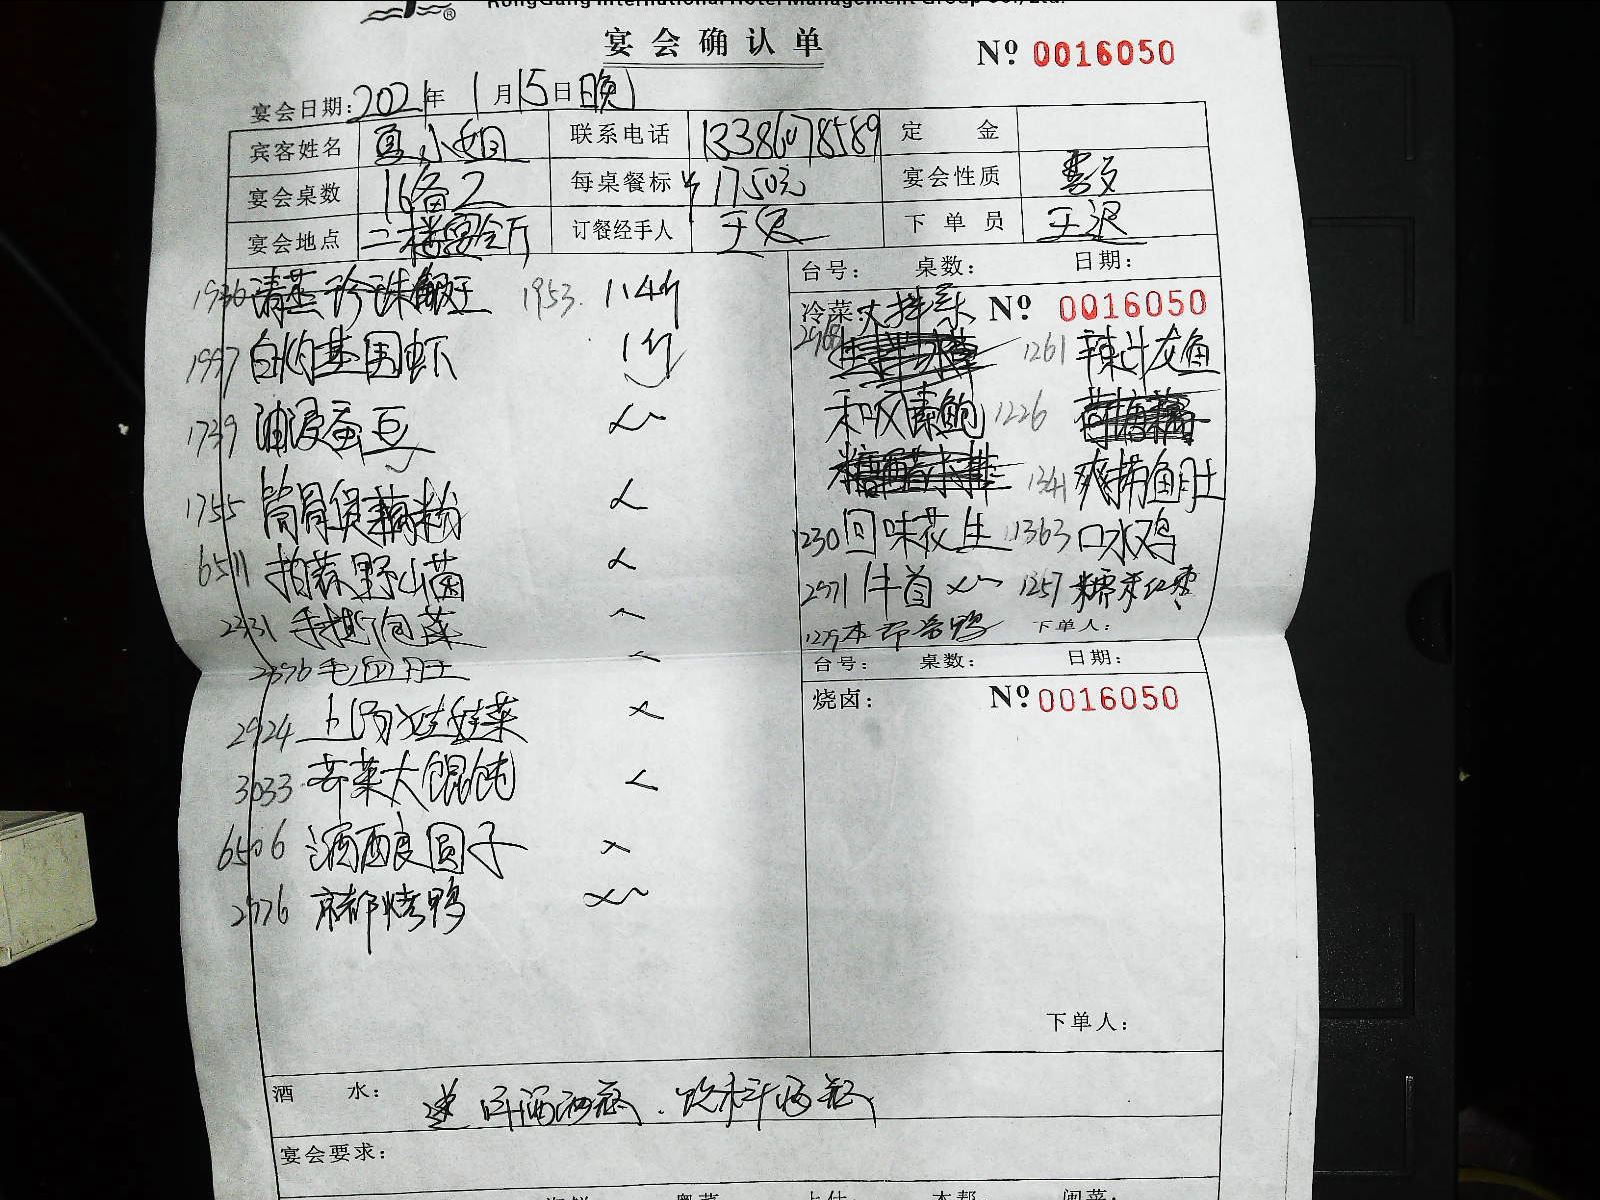 RongGang International Hotel Management Group Co., Ltd.
®
宴会确认单
Nº 0016050
宴会日期:2021年1月15日晚
宾客姓名 夏小姐 联系电话 13386078589 定金
宴会桌数 16备2 每桌餐标 ¥1750元 宴会性质
宴会地点 二楼宴会厅 订餐经手人 下单员
台号: 桌数: 日期:
1936 清蒸珍珠 1953. 1.4斤
冷菜: 大拌菜 Nº 0016050
1997 白灼基围虾 1斤
1261 辣汁皮鱼
1739 油浸蚕豆
和风素鲍 1226
1341 爽拌鱼肚
1755 筒骨煲藕粉
1230 回味花生 1363 口水鸡
6511 拍蒜野山菌
2971 1257 糯米红枣
2331 手撕包菜
下单人:
2376 毛血旺
台号: 桌数: 日期:
烧卤: Nº 0016050
2924 上汤娃娃菜
3033 荠菜大馄饨
6506 酒酿圆子
2976 京都烤鸭
下单人:
酒水:
宴会要求: